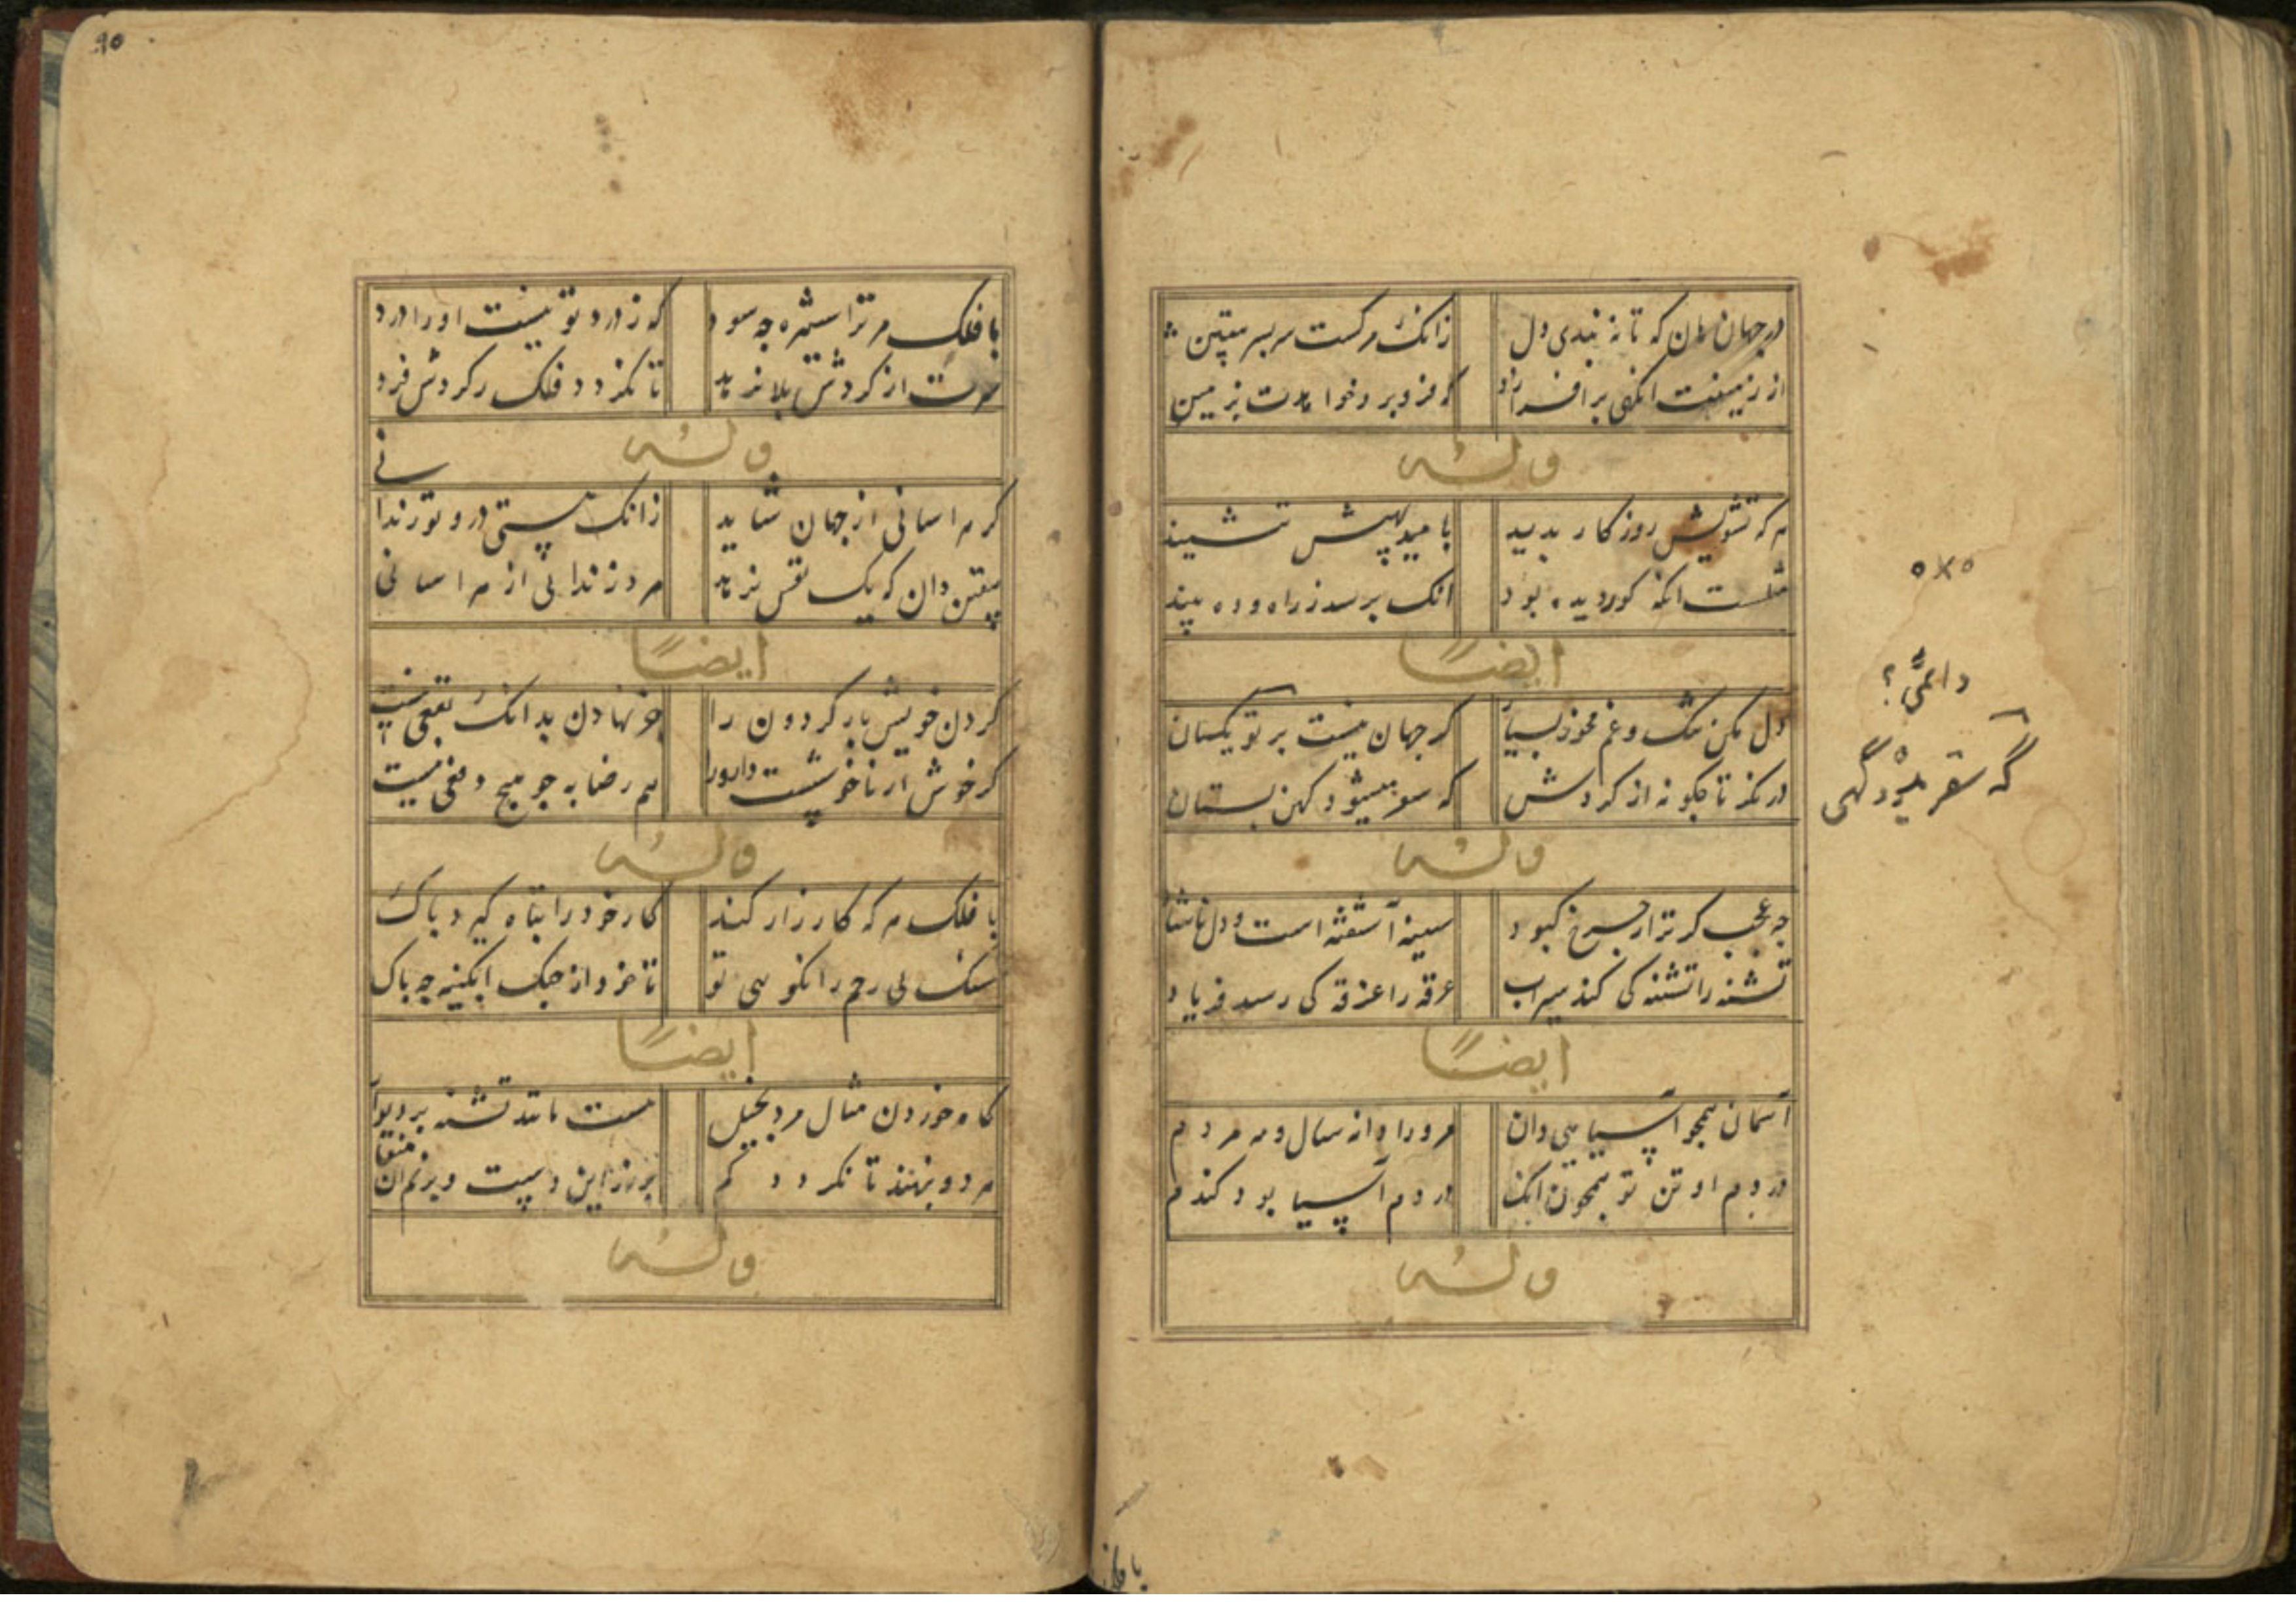 در جهان مان که تا نه بندی دل زانک مرکست سر بسر
از زمینت افراز که فرو برد خواهدت بزمین
وله
هر که تشویش روزگار بدید بامید بهیش ننشیند
مثلست انک کور دیده بود انک برسد ز راه و ده بیند
ایضًا
دل مکن تنگ و غم مخور بسیار گر جهان نیست بر تو یکسان
در نگر تا چکونه از کردش که سو میشود کهن بستان
وله
چه عجب کر ترا ز چرخ کبود سینه آشفته است و دل ناشاد
تشنه را تشنه کی کند سیراب غرقه را غرقه کی رسد فریاد
ایضًا
آسمان همچو آسیایی دان مرو را دانه سال و مه مردم
در دم او تن تو همچون انک در دم آسیا بود کندم
وله
داعیّ؟
گه سقر بود گهی
با فلک
۹۵
با فلک مر ترا ستیزه چه سود که ز درد تو نیست او را درد
سرت از کردش بلا نرهد تا نکردد فلک ز کردش فرد
وله
کر هراسانی از جهان شاید زانک هستی درو تو زندانی
یقین دان که یک نفس نرهد مرد زندانی از هراسانی
ایضًا
کردن خویش بار کردون را جز نهادن بدانک نفعی نیست
کر خوش ار ناخوشست هم رضا به چو هیچ دفعی نیست
وله
با فلک هر که کارزار کند کار خود را تباه کرد باک
سنک بی رحم را نکویی تو تا خود از جنک ابکینه چه باک
ایضًا
کاه خوردن مثال مرد بخیل هست مانند تشنه بر دیوار
هر دو بنهند تا نکردد کم بر زر این دست و بر نم آن منقار
وله